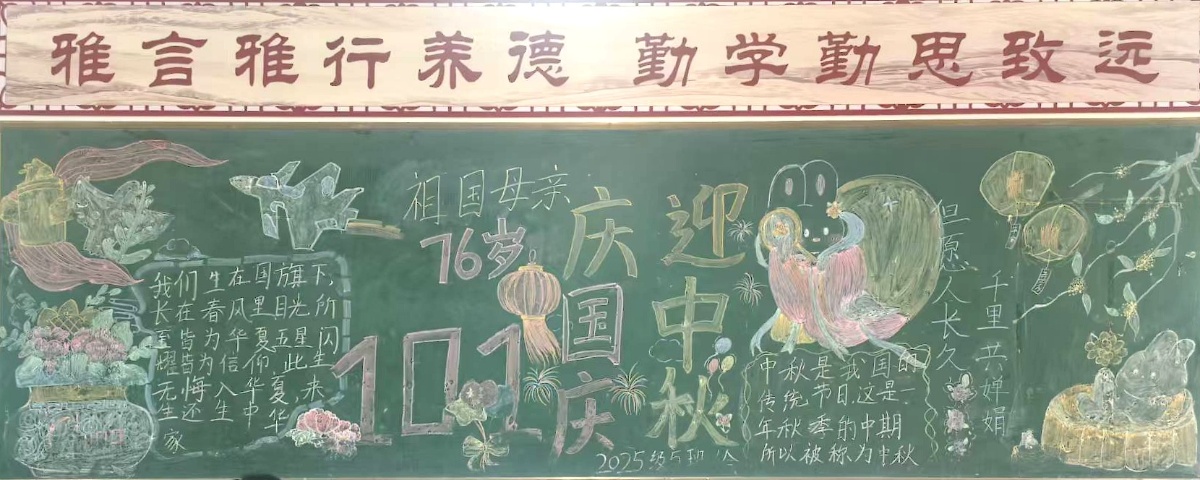 雅言雅行养德 勤学勤思致远
祖国母亲
76岁
庆国庆
迎中秋
101
我们生在国旗下,
长在春风里目光所
至皆为华夏五星闪
耀皆为信仰此生
无悔入华夏,来
生还生中华
家
中秋是我国的
传统节日,这是
年秋季的中期
所以被称为中秋
但愿人长久
千里共婵娟
2025级5班